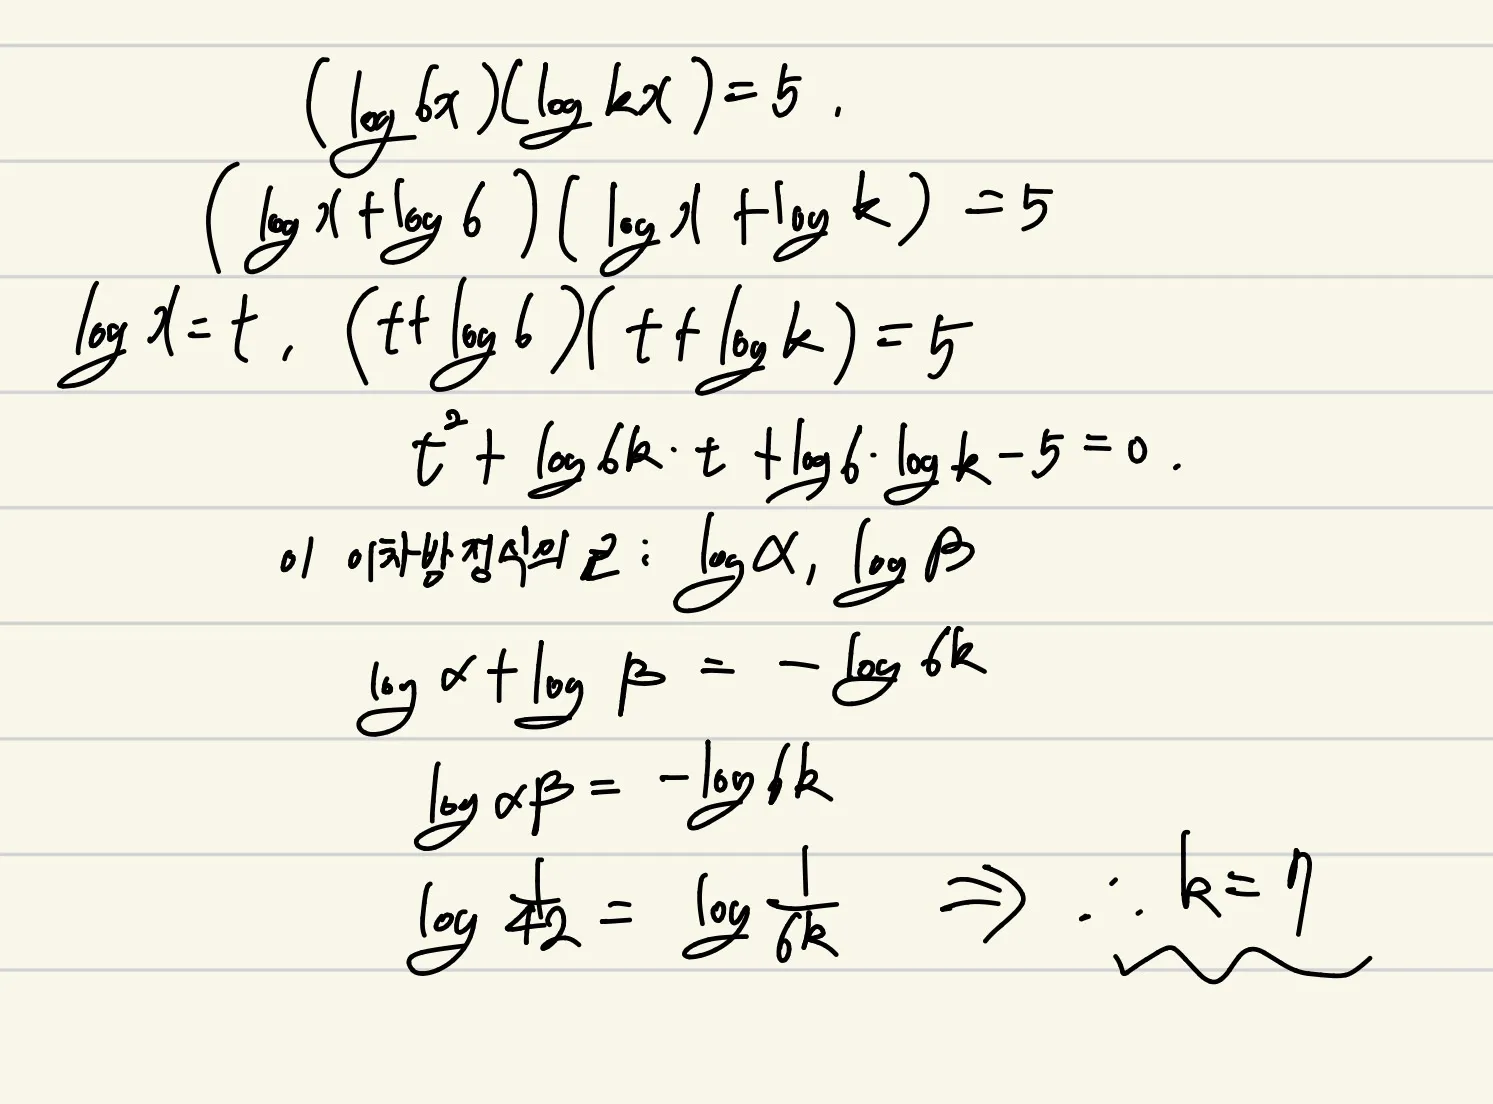 (log 6x)(log kx) = 5 .
(log x + log 6)(log x + log k) = 5
log x = t , (t + log 6)(t + log k) = 5
t² + log 6k · t + log 6 · log k - 5 = 0 .
이 이차방정식의 근 : log α, log β
log α + log β = - log 6k
log αβ = - log 6k
log 1/42 = log 1/6k ⇒ ∴ k = 7